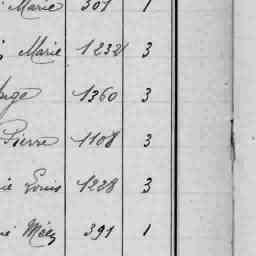 Marie 301 1
Marie 1232 3
1360 3
Pierre 1108 3
ie Louis 1228 3
391 1